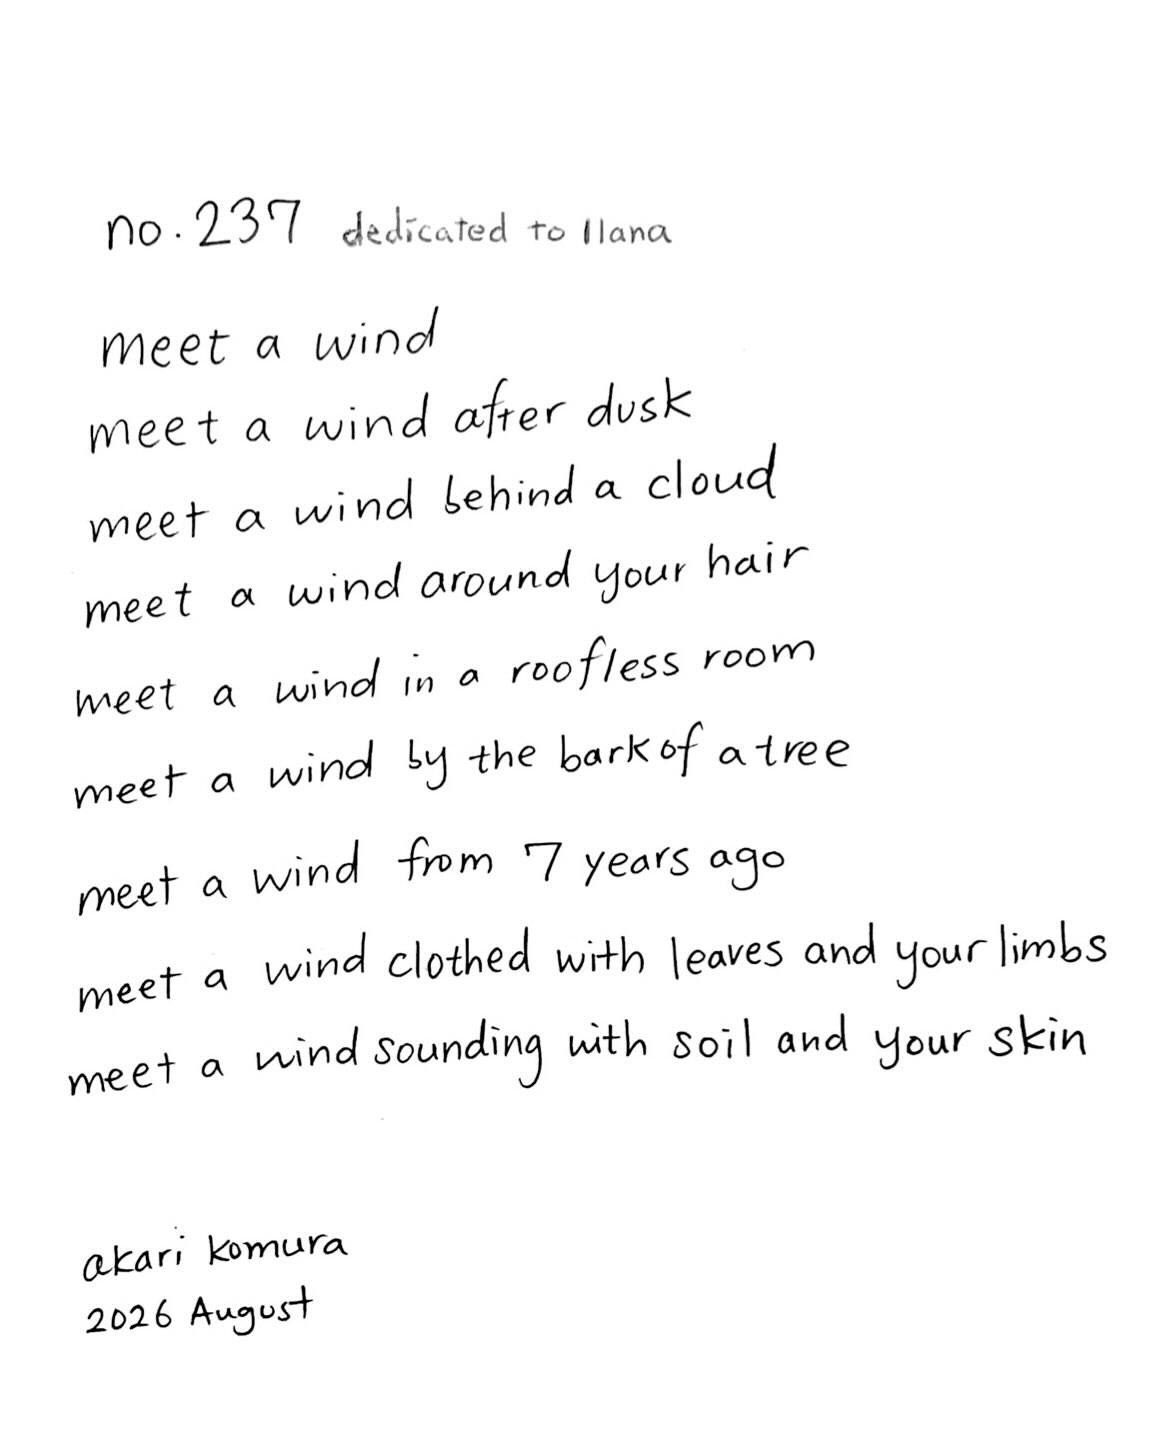 no. 237 dedicated to Ilana
meet a wind
meet a wind after dusk
meet a wind behind a cloud
meet a wind around your hair
meet a wind in a roofless room
meet a wind by the bark of a tree
meet a wind from 7 years ago
meet a wind clothed with leaves and your limbs
meet a wind sounding with soil and your skin
akari komura
2026 August